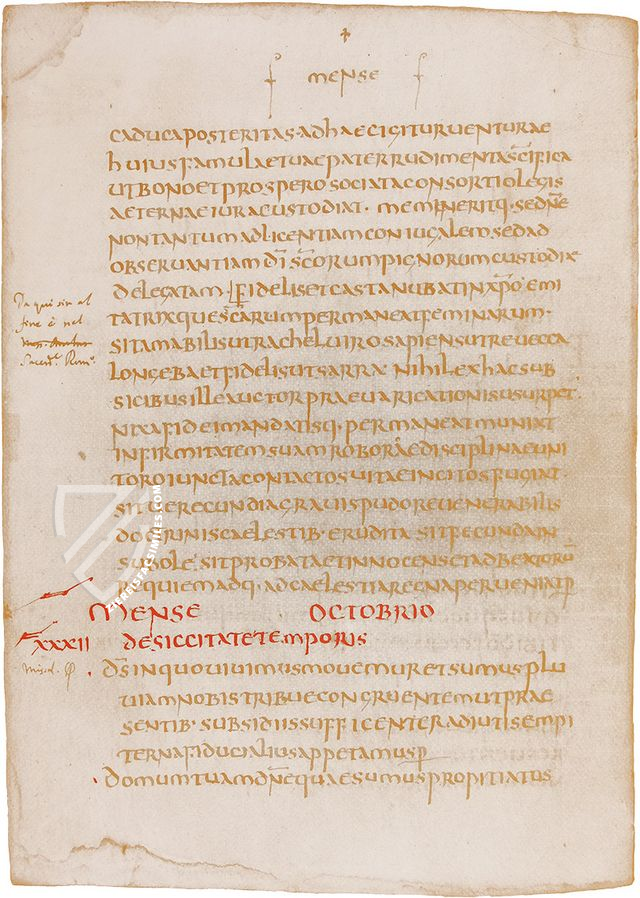 MENSE
CADUCA POSTERITAS · AD HAEC IGITUR UENTURAE
HUIUS FAMULAE TUAE PATER RUDIMENTA SCIFICA
UT BONO ET PROSPERO SOCIATA CONSORTIO LEGIS
AETERNAE IURA CUSTODIAT · MEMINERITQ · SE DNE
NON TANTUM AD LICENTIAM CONIUGALEM SED AD
OBSERUANTIAM DI SCORUM PIGNORUM CUSTODIAE
DELEGATAM · FIDELIS ET CASTA NUBAT IN XPO EMI
TATRIXQUE SCARUM PERMANEAT FEMINARUM ·
SIT AMABILIS UT RACHEL UIRO SAPIENS UT REUECCA
LONGEBA ET FIDELIS UT SARRA NIHIL EX HAC SUB
SICIBUS ILLE AUCTOR PRAEUARICATIONIS USURPET ·
NIXA FIDEI MANDATISQ · PERMANEAT MUNIAT
INFIRMITATEM SUAM ROBORAE DISCIPLINAE UNI
TORO IUNCTA CONTACTOS UITAE INCITOS FUGIAT ·
SIT UERECUNDIA GRAUIS PUDORE UENERABILIS
DOCTRINIS CAELESTIB · ERUDITA SIT FECUNDA IN
SUBOLE · SIT PROBATA ET INNOCENS ET AD BEATORU
REQUIEM ADQ · AD CAELESTIA REGNA PERUENIAT P
MENSE OCTOBRIO
XXXII DE SICCITATE TEMPORIS
DS IN QUO UIUIMUS MOUEMUR ET SUMUS PLU
UIAM NOBIS TRIBUE CONGRUENTEM UT PRAE
SENTIB · SUBSIDIIS SUFFICENTER ADIUTI SEMPI
TERNA FIDUCIALIUS APPETAMUS P
DOMUM TUAM DNE QUAESUMUS PROPITIATUS
Da qui sin al
fine è nel
Sacerd. Rom.